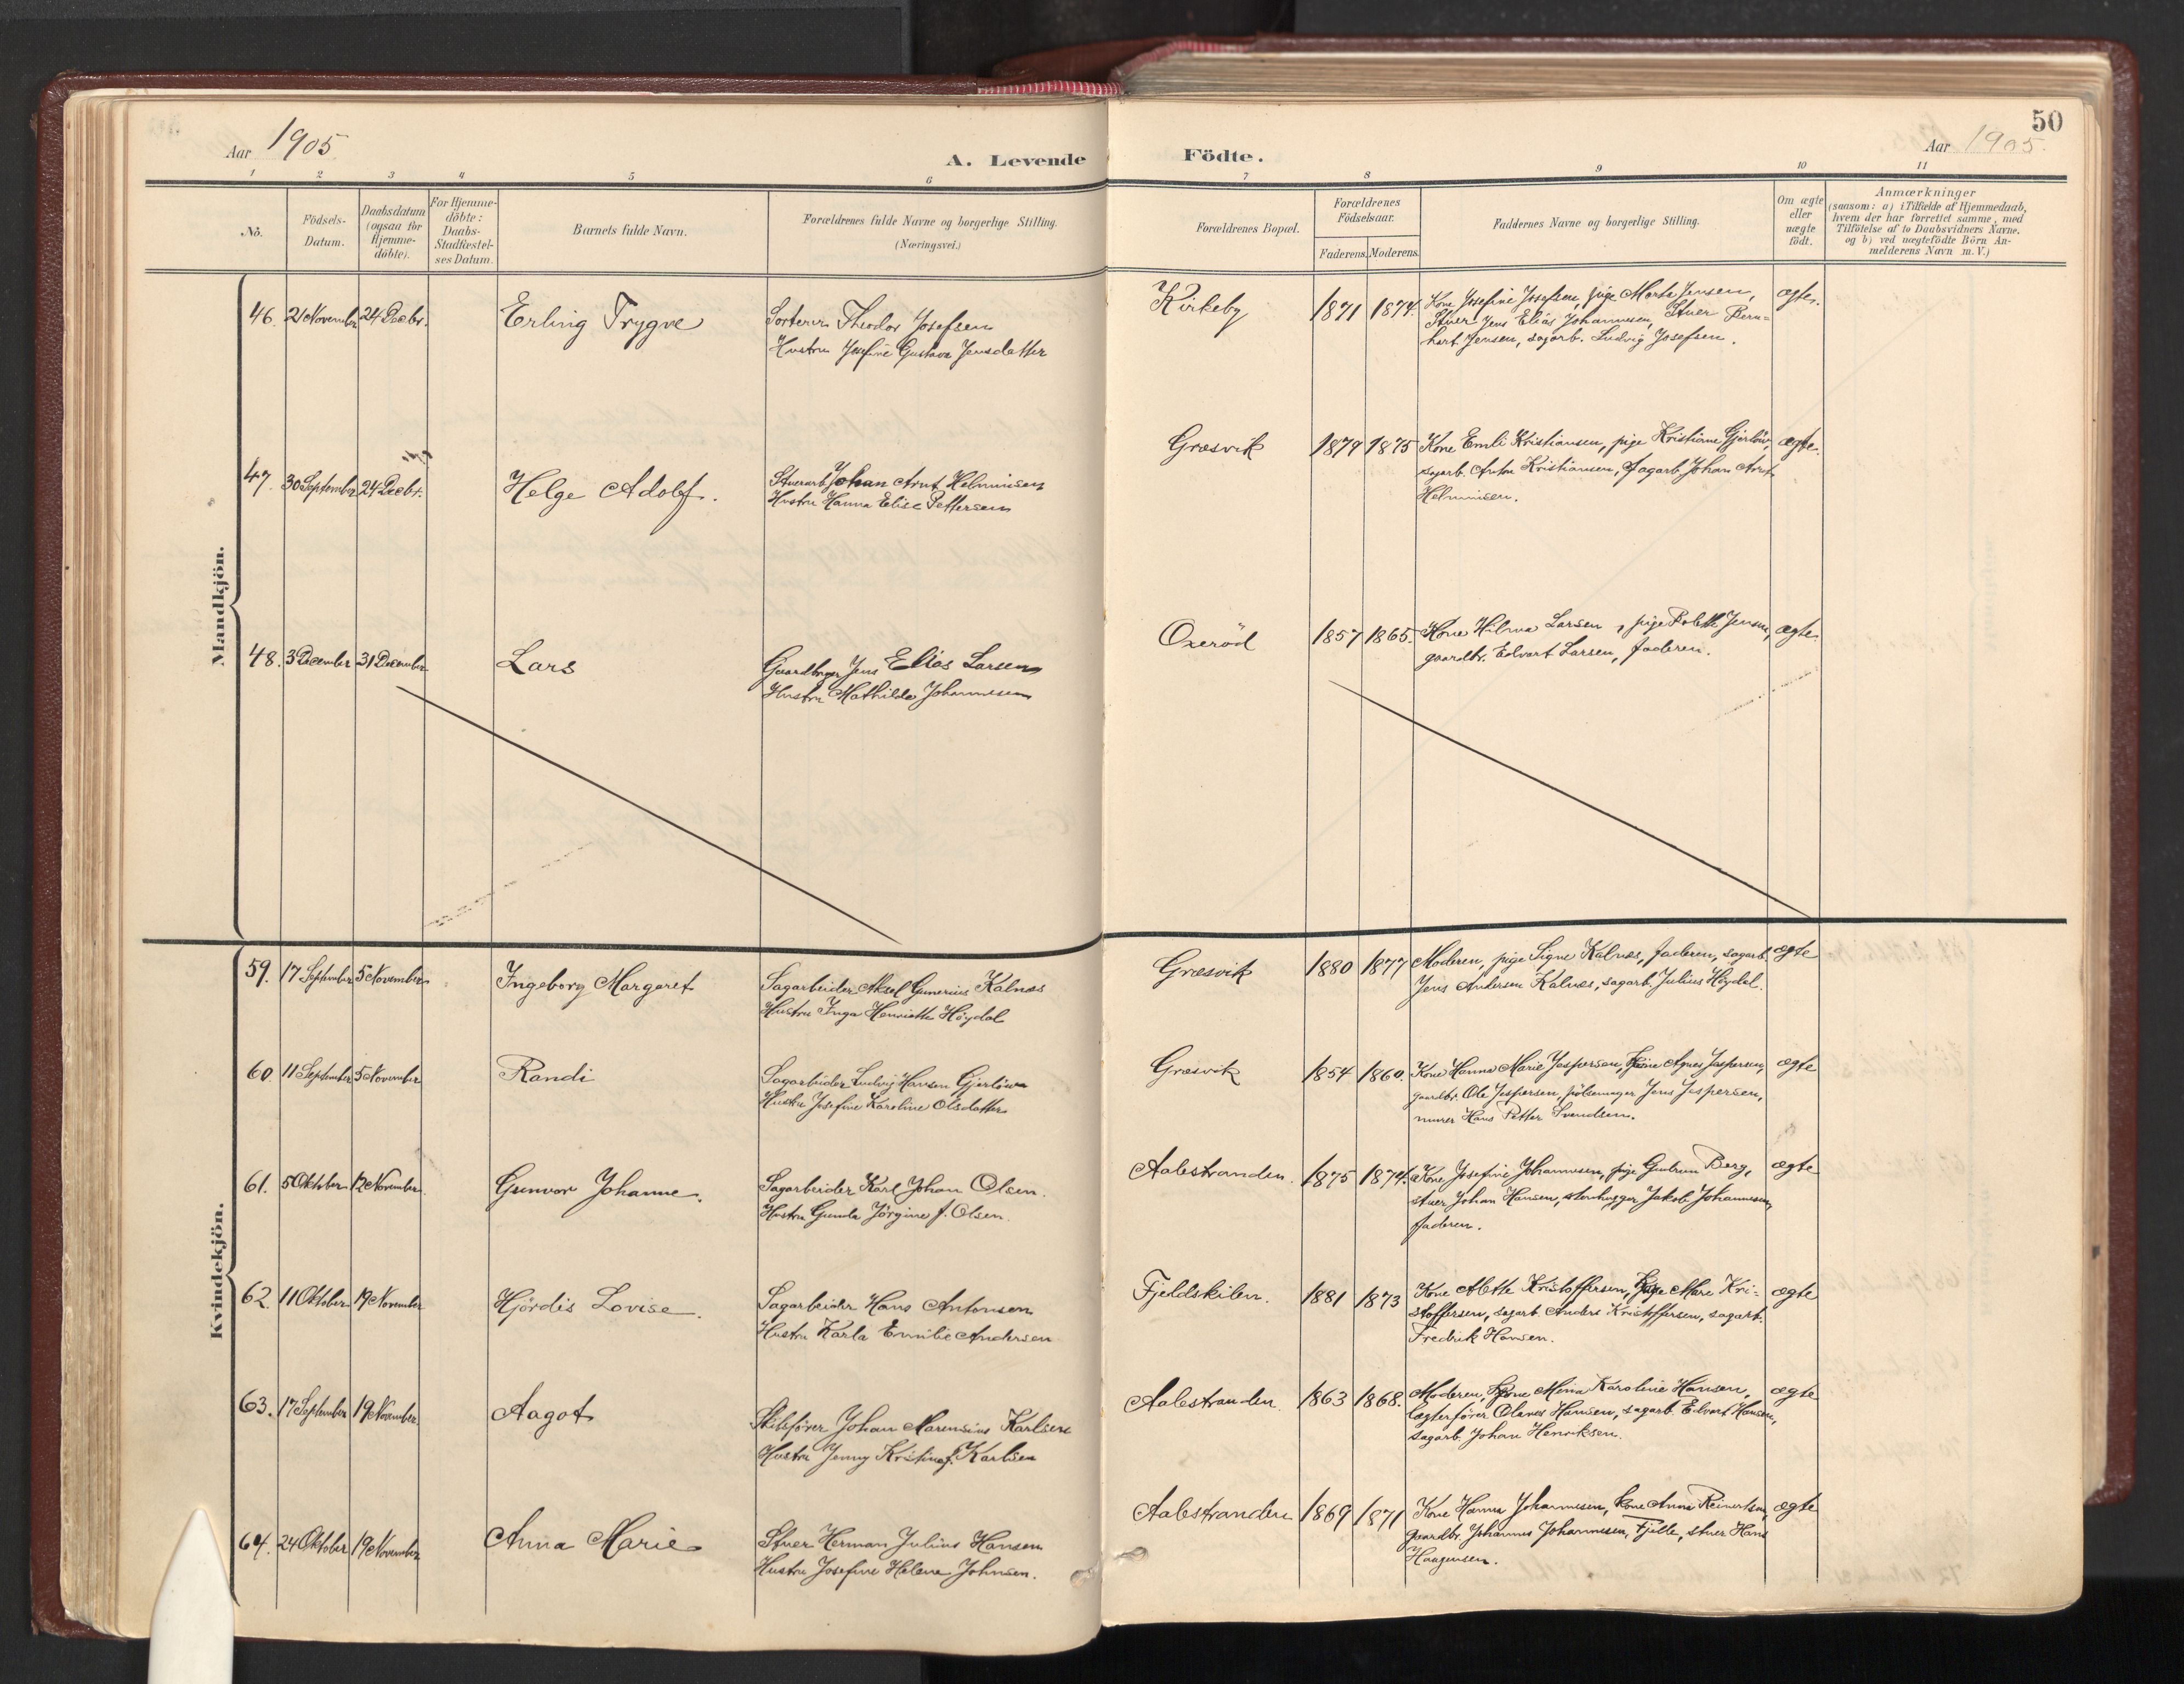 50
Aar 1905
A. Levende Födte.
Aar 1905.
1 2 3 4 5 6 7 8 9 10 11
No.
Födsels-
Datum.
Daabsdatum
(ogsaa for
Hjemme-
döbte).
For Hjemme-
döbte:
Daabs-
Stadfæstel-
ses Datum.
Barnets fulde Navn.
Forældrenes fulde Navne og borgerlige Stilling.
(Næringsvei.)
Forældrenes Bopæl.
Forældrenes
Födselsaar.
Faderens. Moderens.
Faddernes Navne og borgerlige Stilling.
Om ægte
eller
uægte
födt.
Anmærkninger
(saasom: a) i Tilfælde af Hjemmedaab,
hvem der har forrettet samme, med
Tilföielse af to Daabsvidners Navne.
og b) ved uægtefödte Börn An-
melderens Navn m. V.)
Mandkjön.
46. 21 November 24 Decbr. Erling Trygve
Sorterer Theodor Josefsen
Hustru Josefine Gustava Jensdatter
Kirkeby 1871 1874.
Kone Josefine Josefsen, pige Marte Jensen,
Stuer Jens Elias Johannesen, Stuer Bern-
hart Jensen, sagarb. Ludvig Josefsen.
ægte.
47. 30 September 24 Decbr. Helge Adolf.
Stuerarb. Johan Arnt Helmersen
Hustru Hanna Elise Pettersen
Græsvik 1879 1875
Kone Emli Kristiansen, pige Kristiane Gjerlöw,
sagarb. Anton Kristiansen, sagarb. Johan Arnt
ægte.
48. 3 December 31 December Lars
Gaardbruger Jens Elias Larsen
Hustru Mathilde Johannesen
Oxeröd 1857 1865.
Kone Hilma Larsen, pige Bolette Jensen,
gaardbr. Edvart Larsen, faderen.
ægte.
Kvindekjön.
59. 17 September 5 November Ingeborg Margaret
Sagarbeider Aksel Gunerius Kalnæs
Hustru Inga Henriette Höydal
Græsvik 1880 1877
Moderen, pige Signe Kalnæs, faderen, sagarb.
Jens Andersen Kalnæs, sagarb. Julius Höydal.
ægte
60. 11 September 5 November Randi
Sagarbeider Ludvig Hansen Gjerlöw
Hustru Josefine Karoline Olsdatter
Græsvik 1854 1860.
Kone Hanna Marie Jespersen, Kone Agnes Jespersen,
gaardbr. Ole Jespersen, pölsemager Jens Jespersen,
murer Hans Petter Svendsen.
ægte
61. 5 Oktober 12 November Gunvor Johanne.
Sagarbeider Karl Johan Olsen.
Hustru Gunda Jörgine f. Olsen.
Aalestranden. 1875 1874.
Kone Josefine Johannesen, pige Gudrun Berg,
stuer Johan Hansen, stenhugger Jakob Johannesen,
faderen.
ægte
62. 11 Oktober 19 November Hjördis Lovise.
Sagarbeider Hans Antonsen
Hustru Karla Emilie Andersen
Fjeldskilen. 1881 1873
Kone Alette Kristoffersen, pige Mare Kri-
stoffersen, sagarb. Anders Kristoffersen, sagarb.
Fredrik Hansen.
ægte
63. 17 September 19 November Aagot
Skibsförer Johan Marensius Karlsen
Hustru Jenny Kristine f. Karlsen
Aalestranden 1863 1868.
Moderen, Kone Mina Karoline Hansen,
lægterförer Olaves Hansen, sagarb. Edvart Hansen,
sagarb. Johan Henriksen.
ægte
64. 24 Oktober 19 November Anna Marie
Stuer Herman Julius Hansen
Hustru Josefine Helene Johnsen.
Aalestranden 1869 1871
Kone Hanna Johannesen, kone Anna Reinertsen,
Gaardbr. Johannes Johannesen, Fjelle, stuer Hans
Haagensen.
ægte